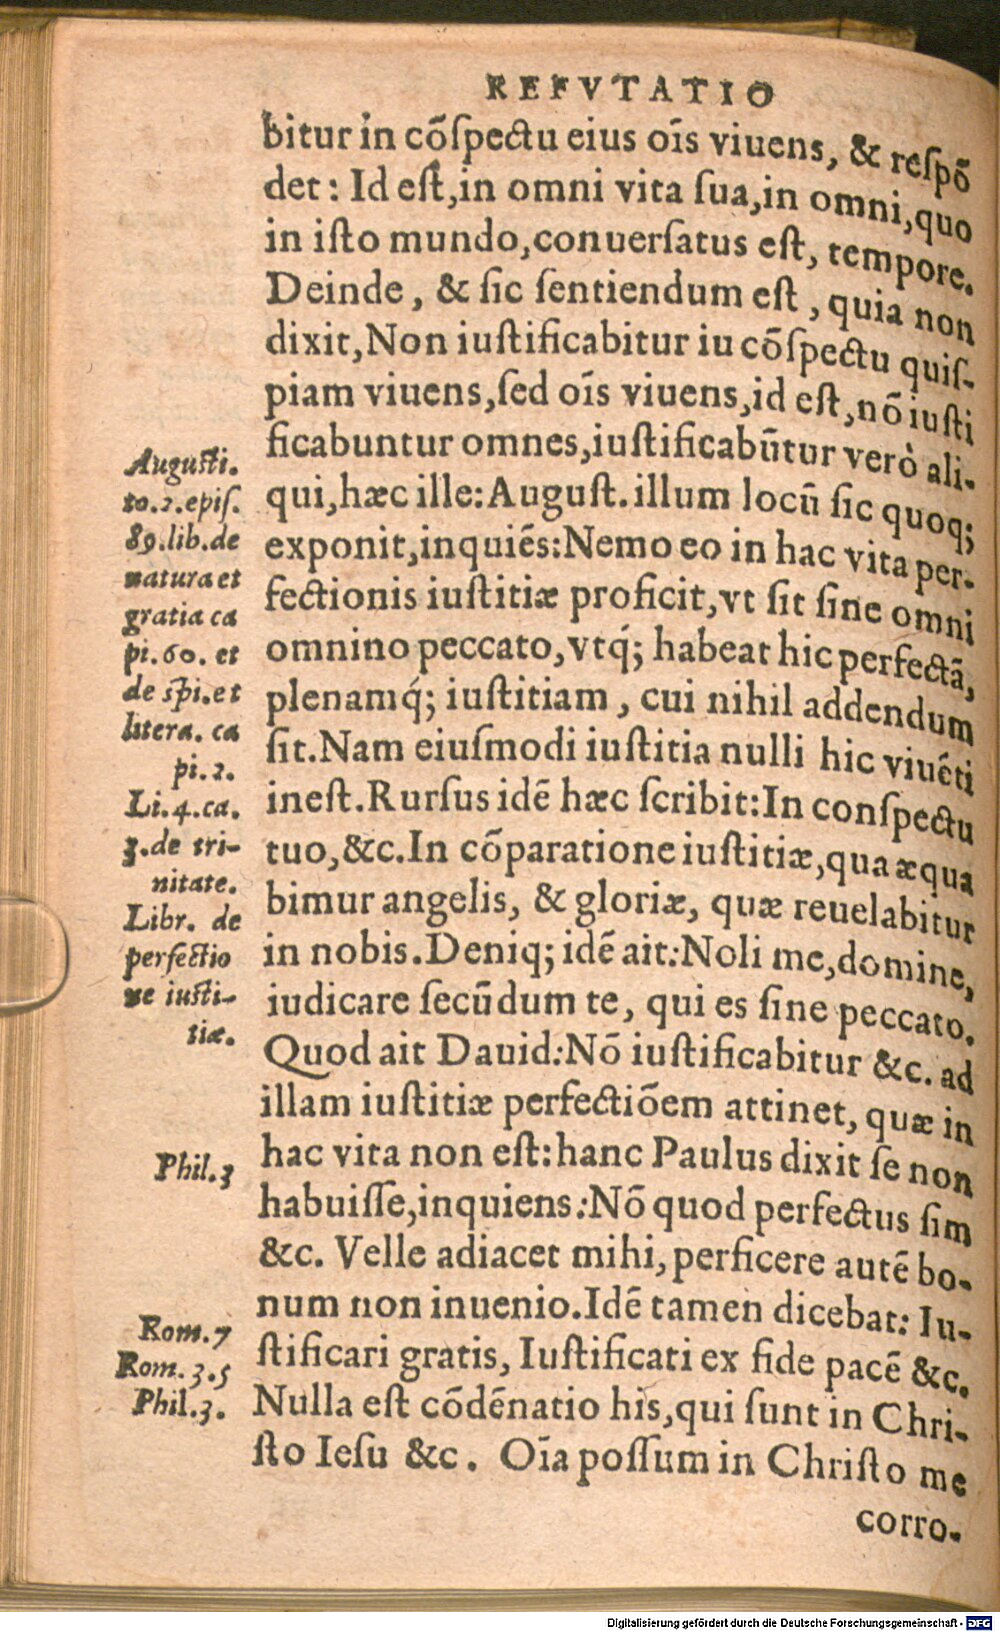 REFVTATIO
bitur in cõſpectu eius oĩs viuens, & reſpõ
det: Id eſt,in omni vita ſua,in omni,quo
in iſto mundo,conuerſatus eſt, tempore.
Deinde, & ſic ſentiendum eſt, quia non
dixit,Non iuſtificabitur iu cõſpectu quiſ-
piam viuens,ſed oĩs viuens,id eſt,nõ iuſti
ficabuntur omnes,iuſtificabũtur verò ali-
qui,hæc ille:Auguſt.illum locũ ſic quoq;
exponit,inquiẽs:Nemo eo in hac vita per-
fectionis iuſtitiæ proficit,vt ſit ſine omni
omnino peccato,vtq́; habeat hic perfectã,
plenamq́; iuſtitiam, cui nihil addendum
ſit.Nam eiuſmodi iuſtitia nulli hic viuẽti
ineſt.Rurſus idẽ hæc ſcribit:In conſpectu
tuo,&c.In cõparatione iuſtitiæ,qua æqua
bimur angelis, & gloriæ, quæ reuelabitur
in nobis.Deniq; idẽ ait:Noli me,domine,
iudicare ſecũdum te, qui es ſine peccato.
Quod ait Dauid:Nõ iuſtificabitur &c. ad
illam iuſtitiæ perfectiõem attinet, quæ in
hac vita non eſt:hanc Paulus dixit ſe non
habuiſſe,inquiens:Nõ quod perfectus ſim
&c. Velle adiacet mihi,perficere autẽ bo-
num non inuenio.Idẽ tamen dicebat: Iu-
ſtificari gratis, Iuſtificati ex fide pacẽ &c.
Nulla eſt cõdẽnatio his,qui ſunt in Chri-
ſto Ieſu &c. Oĩa poſſum in Chriſto me
corro-
Auguſti.
to.2.epiſ.
89.lib.de
natura et
gratia ca
pi.60. et
de ſpi.et
litera. ca
pi.2.
Li.4.ca.
3.de tri-
nitate.
Libr. de
perfectio
ne iuſti-
tiæ.
Phil.3
Rom.7
Rom.3.5
Phil.3.
Digitalisierung gefördert durch die Deutsche Forschungsgemeinschaft - DFG